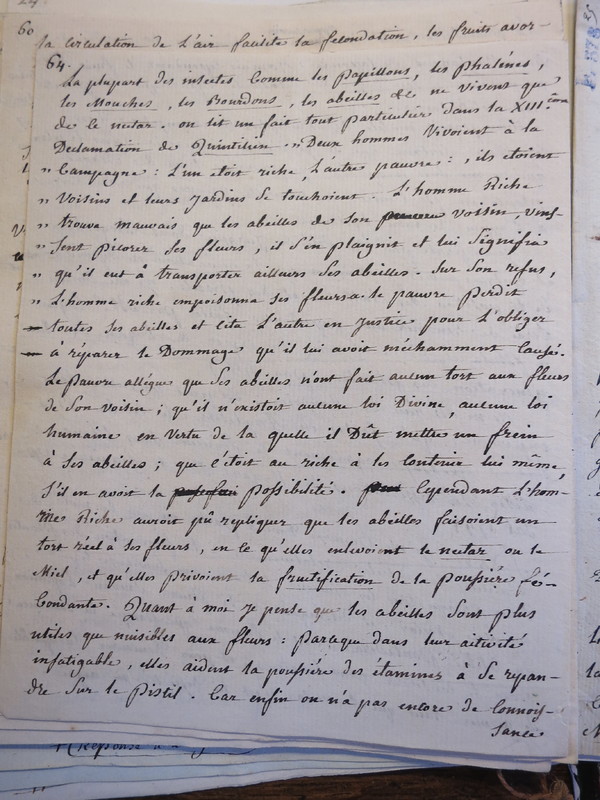 60
la circulation de l'air facilite la fécondation, les fruits avor-
64.
La plupart des insectes comme les papillons, les phalénes,
les Mouches, les Bourdons, les abeilles &c ne vivent que
de le nectar. on lit un fait tout particulier dans la XIII.eme
Declamation de Quintilien. „Deux hommes Vivoient à la
„ Campagne : L'un etoit riche, L'autre pauvre : ils étoient
„ Voisins et leurs Jardins se touchoient. L'homme Riche
„ trouva mauvais que les abeilles de son voisin, vins-
„ sent picorer ses fleurs, il s'en plaignit et lui signifia
„ qu'il eut à transporter ailleurs ses abeilles. Sur son refus,
„ L'homme riche empoisonna ses fleurs. le pauvre perdit
toutes ses abeilles et cita L'autre en Justice pour L'obliger
à réparer le Dommage qu'il lui avoit méchamment causé.
Le pauvre allégua que ses abeilles n'ont fait aucun tort aux fleurs
de son voisin ; qu'il n'existoit aucune loi Divine, aucune loi
humaine en vertu de la quelle il Dût mettre un frein
à ses abeilles ; que c'étoit au riche à les contenir lui même,
s'il en avoit la possibilité. Cependant L'hom-
me Riche auroit pû repliquer que les abeilles faisoient un
tort réel à ses fleurs, en ce qu'elles enlevoient le nectar ou le
Miel, et qu'elles privoient la fructification de la poussiére fé-
condante. Quant à moi je pense que les abeilles sont plus
utiles que nuisibles aux fleurs : parceque dans leur activité
infatigable, elles aident la poussiére des étamines à se repan-
dre sur le Pistil. Car enfin on n'a pas encore de connois-
sance
Réponse